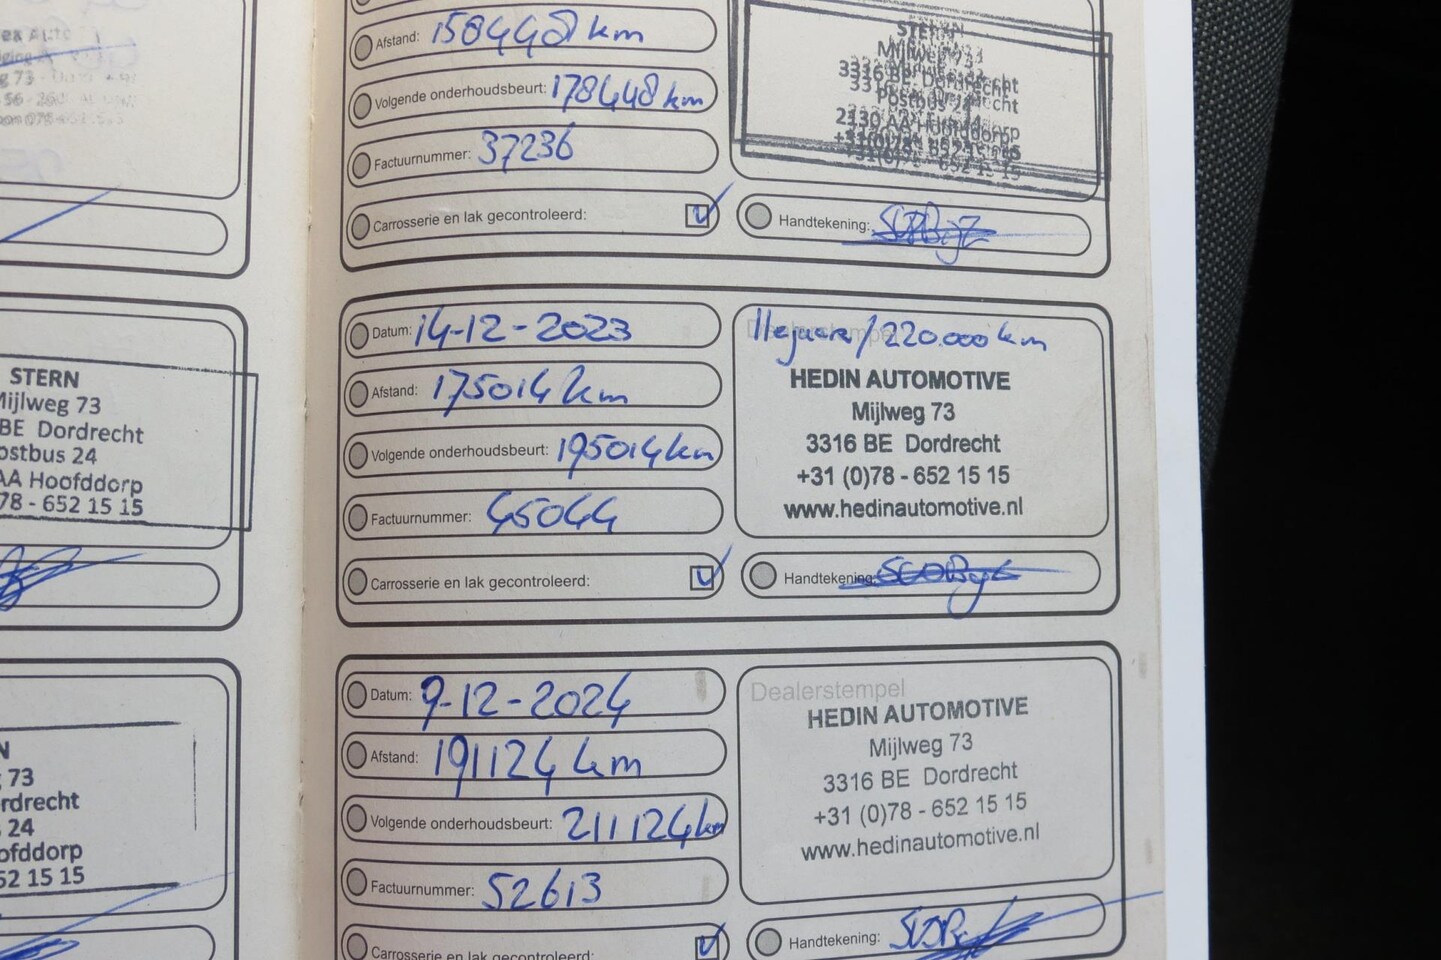 STERN
Mijlweg 73
BE Dordrecht
Postbus 24
AA Hoofddorp
78 - 652 15 15
73
24
52 15 15
Afstand: 158448 km
Volgende onderhoudsbeurt: 178448 km
Factuurnummer: 37236
Carrosserie en lak gecontroleerd:
STERN
Mijlweg 73
3316 BE Dordrecht
Postbus 24
2130 AA Hoofddorp
Handtekening:
Datum: 14-12-2023
Afstand: 175014 km
Volgende onderhoudsbeurt: 195014 km
Factuurnummer: 45044
Carrosserie en lak gecontroleerd:
Dealerstempel
220.000 km
HEDIN AUTOMOTIVE
Mijlweg 73
3316 BE Dordrecht
+31 (0)78 - 652 15 15
www.hedinautomotive.nl
Handtekening:
Datum: 9-12-2024
Afstand: 191124 km
Volgende onderhoudsbeurt: 211124 km
Factuurnummer: 52613
Carrosserie en lak gecontroleerd:
Dealerstempel
HEDIN AUTOMOTIVE
Mijlweg 73
3316 BE Dordrecht
+31 (0)78 - 652 15 15
www.hedinautomotive.nl
Handtekening: